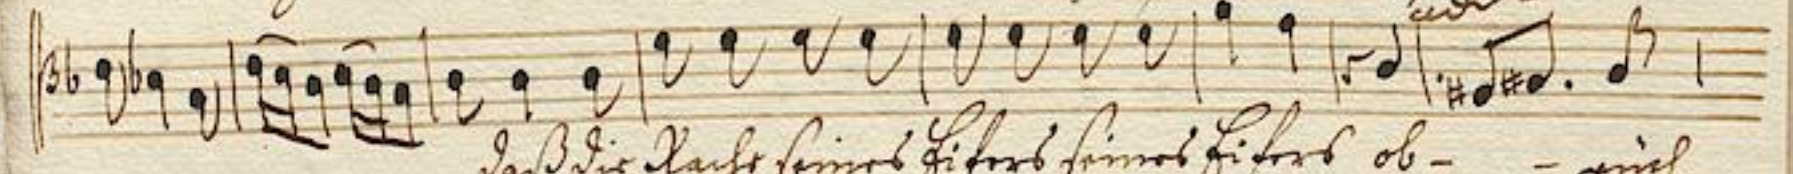 daß die Rache seines Eifers seines Eifers ob - - auch